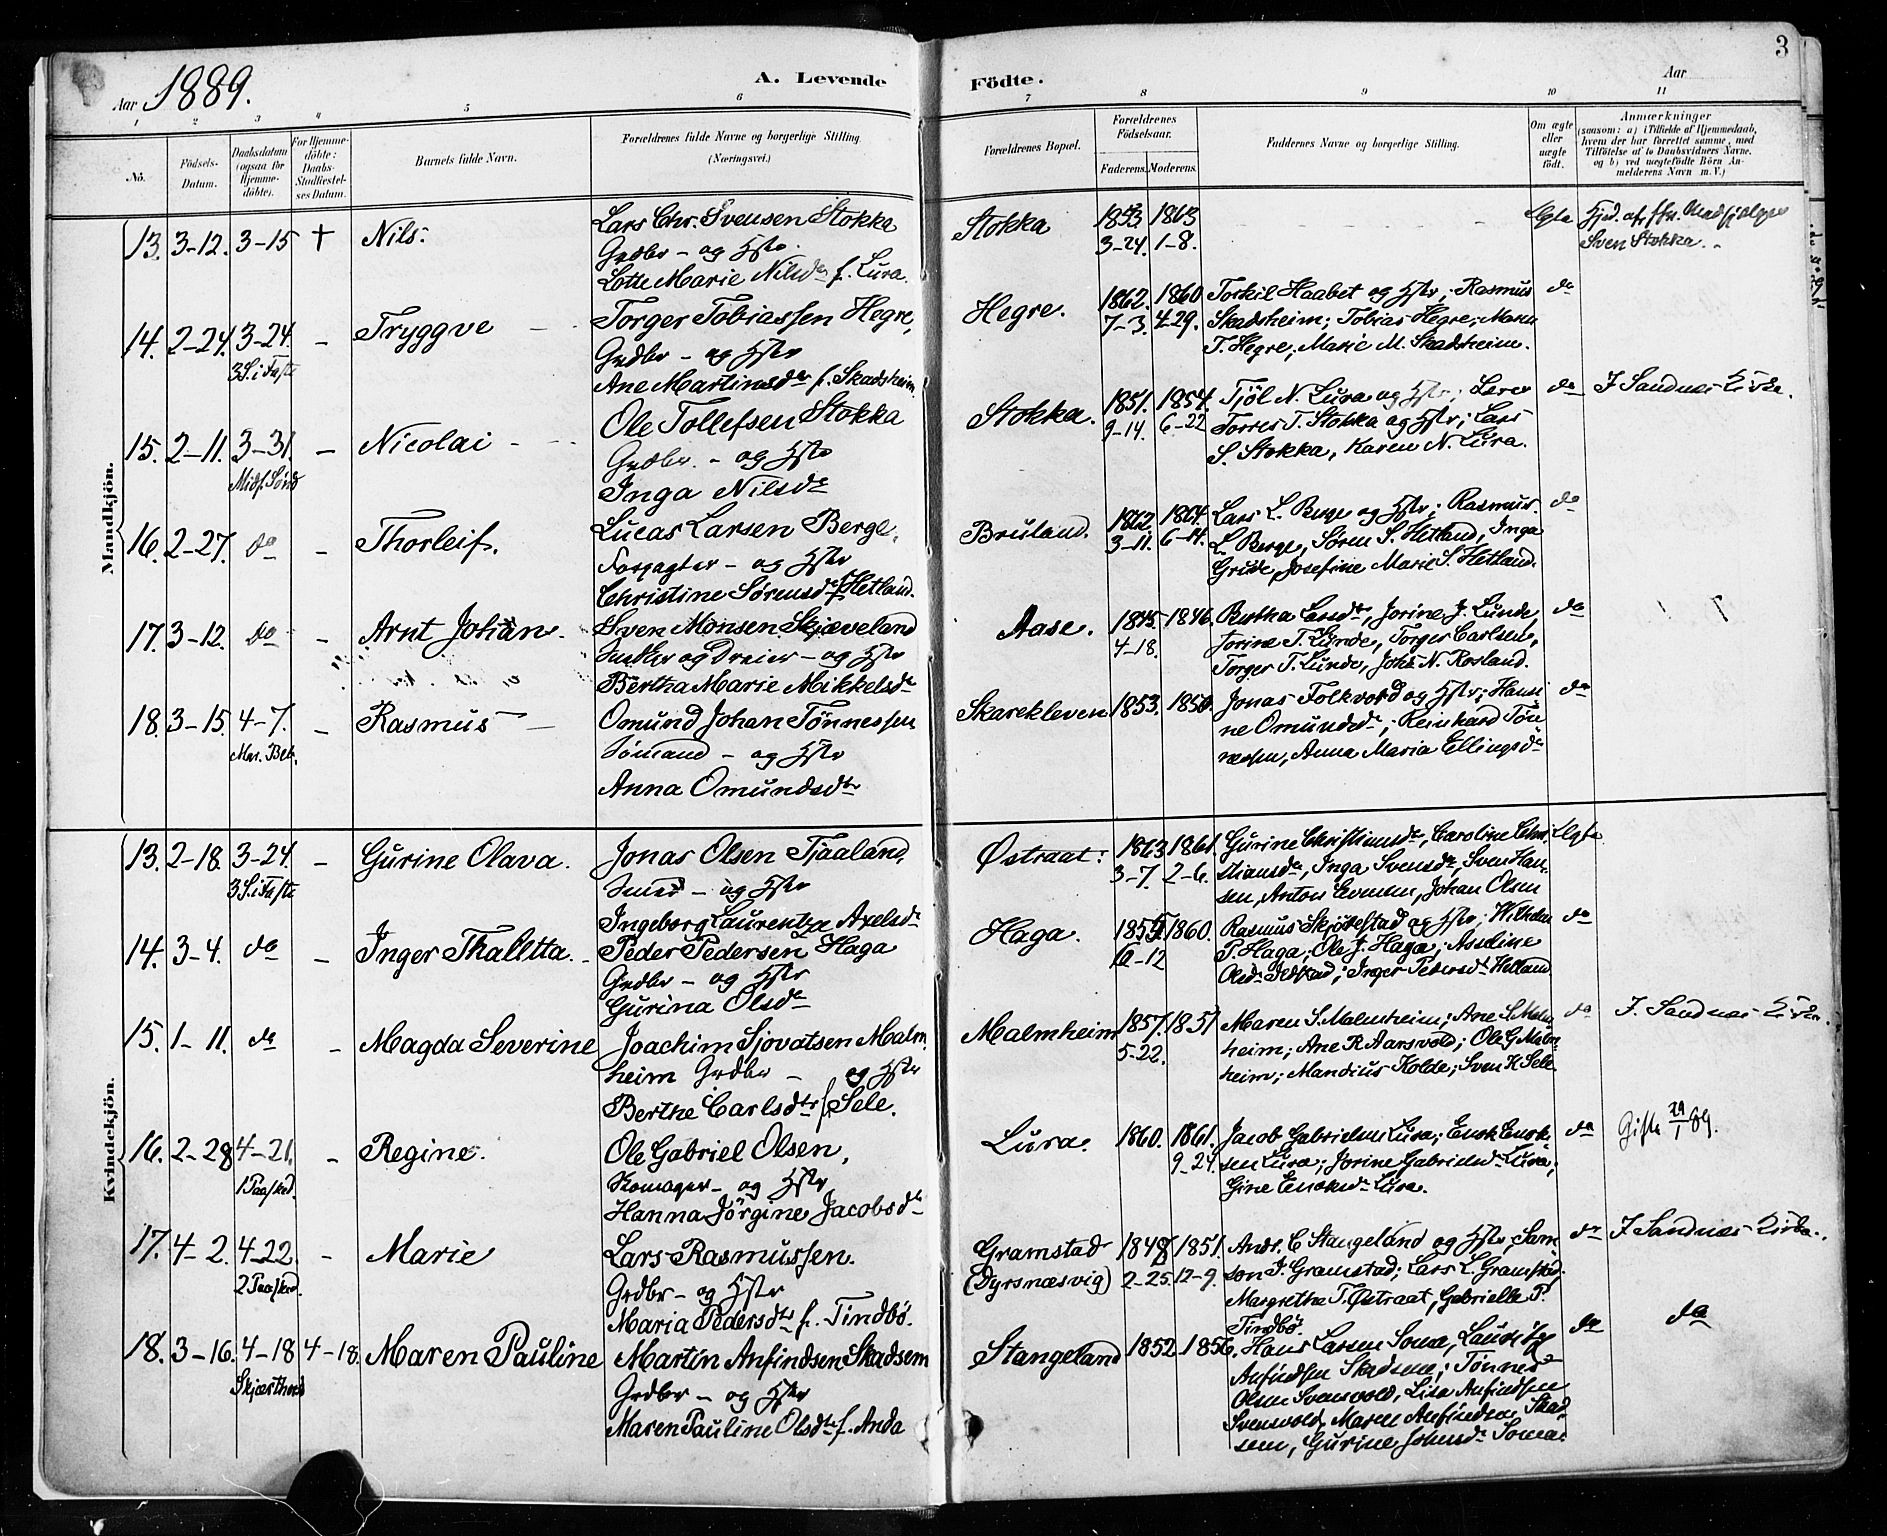 3
Aar 1889.
A. Levende Födte.
Aar
1 2 3 4 5 6 7 8 9 10 11
No.
Födsels-Datum.
Daabsdatum (ogsaa for Hjemme-döbte).
For Hjemme-döbte: Daabs-Stadfæstel-ses Datum.
Barnets fulde Navn.
Forældrenes fulde Navne og borgerlige Stilling. (Næringsvei.)
Forældrenes Bopæl.
Forældrenes Födselsaar.
Faderens. Moderens.
Faddernes Navne og borgerlige Stilling.
Om ægte eller uægte födt.
Anmærkninger
(saasom: a) i Tilfælde af Hjemmedaab, hvem der har forrettet samme, med Tilföielse af to Daabsvidners Navne, og b) ved uægtefödte Börn An-melderens Navn m. V.)
Mandkjön.
13. 3-12. 3-15 † Nils. Lars Chr. Svensen Stokka Stokka 1863 Ægte
Grdbr - og Hstr 3-24. 1-8. Sven Stokka.
Lotte Marie Nilsdr f. Lura
14. 2-24. 3-24. - Tryggve Torger Tobiassen Hegre, Hegre. 1862. 1860 Torkil Haabet og Hstr; Rasmus do
3 S. i Faste Grdbr - og Hstr 7-3. 4-29. Skadsheim; Tobias Hegre; Maren
Ane Martinsdr f. Skadsheim T. Hegre; Marie M. Skadsheim.
15. 2-11. 3-31. - Nicolai Ole Tollefsen Stokka Stokka. 1851. 1854. Tjöl N. Lura og Hstr; Lærer do I Sandnes Kirke.
Midf. Sönd Grdbr. - og Hstr 9-14. 6-22 Torres T. Stokka og Hstr; Lars
Inga Nilsdr S. Stokka, Karen N. Lura.
16. 2-27. do - Thorleif. Lucas Larsen Berge, Bruland. 1862. 1864. Lars L. Berge og Hstr; Rasmus do
Forpagter - og Hstr 3-11. L. Berge, Søren S. Hetland, Inga
Christine Sørensdr f. Hetland. Grude, Josefine Marie S. Hetland.
17. 3-12. do - Arnt Johan Sven Monsen Skjæveland Aase. 1845. 1846. Bertha Larsdr, Jorine J. Lunde, do
og Dreier - og Hstr 4-18. Jorine T. Lunde, Torger Carlsen,
Bertha Marie Mikkelsdr Torger T. Lunde, Johs N. Rosland.
18. 3-15. 4-7. - Rasmus Omund Johan Tönnessen Skarekleven 1853. Jonas Folkvord og Hstr; Hansi do
Mar. Beb. Sömand - og Hstr ne Omundsdr; Reinhard Tön
Anna Omundsdtr nessen, Anna Maria Ellingsdr
Kvindekjön.
13. 2-18. 3-24. - Gurine Olava. Jonas Olsen Tjaaland, Østraat. 1863 1861. Gurine Christiansdr, Caroline Chri Ægte
3 S. i Faste Smed - og Hstr 3-7. 2-6. stiansdr, Inga Svensdr, Sven Han-
Ingeborg Laurentza Axelsdr sen, Anton Evensen, Johan Olsen
14. 3-4. do - Inger Thalitta. Peder Pedersen Haga Haga. 1860. Rasmus Skjödestad og Hstr; Wilhelm do
Grdbr - og Hstr P. Haga, Ole J. Haga; Asseline
Gurina Olsdr Olsdr Inger Pedersdr Helland
15. 1-11. do - Magda Severine Joachim Sjovatsen Malm Malmheim 1857. 1851 Maren S. Malmheim; Ane S. Malm do I Sandnes Kirke.
heim Grdbr - og Hstr 5-22. heim; Ane R. Aarsvold; Ole G. Malm-
Berthe Carlsdtr f. Sele. heim; Mandius Kolde; Sven K. Sele.
16. 2-28 4-21. - Regine. Ole Gabriel Olsen, Lura. 1860. 1861. Jacob Gabrielsen Lura; Enok Enok- do Gifte 29/1 89.
1 Paaskед. Skomager - og Hstr 9-24. sen Lura; Jorine Gabrielsdr Lura;
Hanna Jörgine Jacobsdr Gine Enoksdr Lura.
17. 4-2. 4-22. - Marie Lars Rasmussen. Gramstad 1848 1851. Andr. C. Stangeland og Hstr; Sam do I Sandnes Kirke.
2 Paasked. Grdbr - og Hstr (Dyrsnæsvig) 2-25. 12-9. son J. Gramstad; Lars L. Gramstad,
Maria Pedersdtr f. Tindbö. Margretha T. Østraat, Gabrielle P.
Tindbö.
18. 3-16. 4-18 4-18. Maren Pauline Martin Anfindsen Skadsem Stangeland 1852 1856. Hans Larsen Soma, do do
Skjærthorsd Grdbr - og Hstr Anfindsen Skadsem; Tönnes
Maren Pauline Olsdtr f. Anda Olsen Svensvold, Lisa Anfindsen
Svensvold, Maren Anfindsen Skad
sem, Gurine Johnsdr Soma.